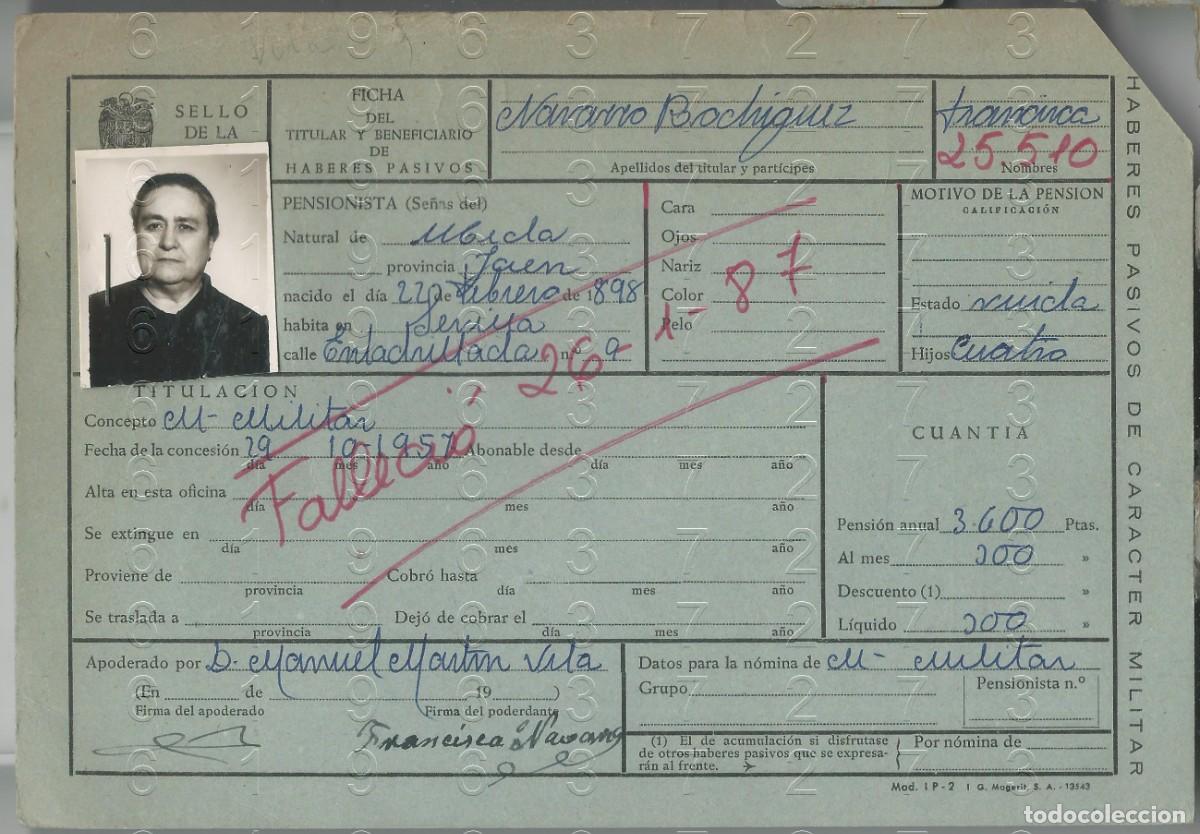 6 1 9 6 3 7 2 7 3
SELLO
DE LA
FICHA
DEL
TITULAR Y BENEFICIARIO
DE
HABERES PASIVOS
Navarro Rodriguez
Apellidos del titular y partícipes
Francisca
25 510
Nombres
HABERES PASIVOS DE CARACTER MILITAR
PENSIONISTA (Señas del)
Natural de Ubeda
provincia Jaen
nacido el día 22 de Febrero de 1898
habita en Sevilla
calle Enladrillada n.º 9
Cara
Ojos
Nariz
Color
Pelo
MOTIVO DE LA PENSION
CALIFICACIÓN
Estado viuda
Hijos Cuatro
Falleció 26-1-87
TITULACION
Concepto M- Militar
Fecha de la concesión 29 10-1957 Abonable desde
día mes año día mes año
Alta en esta oficina
día mes año
Se extingue en
día mes año
Proviene de Cobró hasta
provincia día mes año
Se traslada a Dejó de cobrar el
provincia día mes año
CUANTIA
Pensión anual 3.600 Ptas.
Al mes 300 »
Descuento (1) »
Líquido 300 »
Apoderado por D. Manuel Martin Vila
(En de 19 )
Firma del apoderado Firma del poderdante
Francisca Navarro
Datos para la nómina de M- Militar
Grupo
Pensionista n.º
(1) El de acumulación si disfrutase
de otros haberes pasivos que se expresa-
rán al frente.
Por nómina de
Mod. IP-2 I G. Magerit, S. A. - 13543
todocoleccion